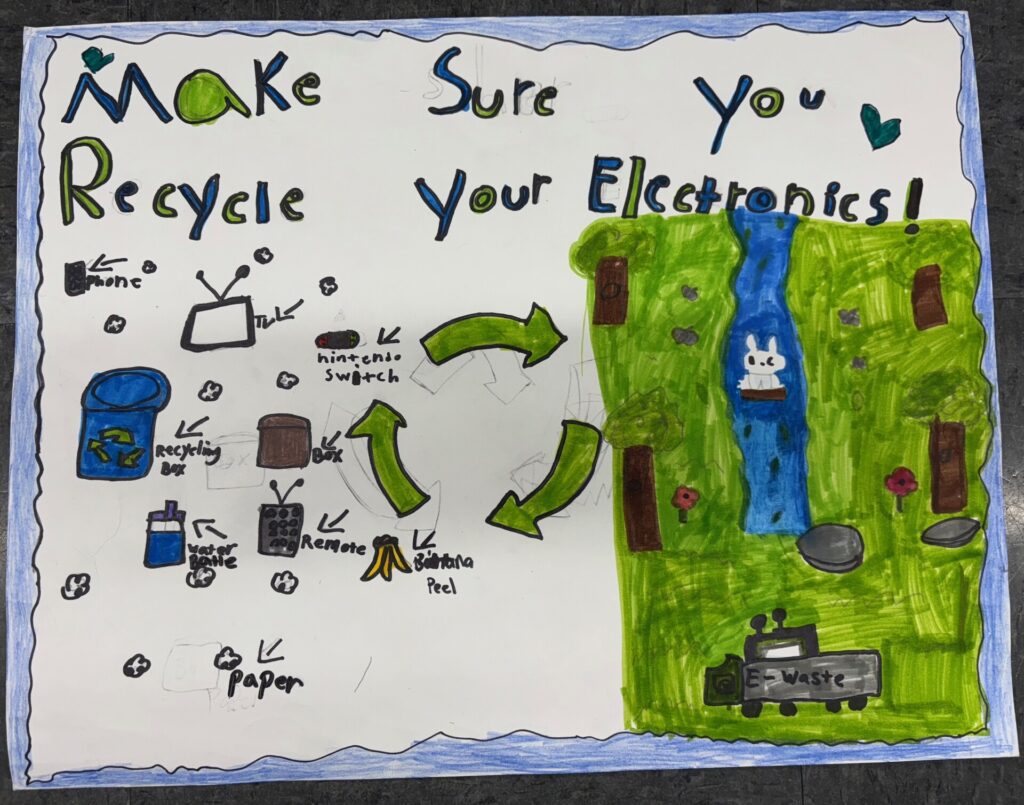 Make Sure you
Recycle your Electronics!
Phone
TV
nintendo
switch
Recycling
Box
Box
Water
Bottle
Remote
Banana
Peel
paper
E-Waste